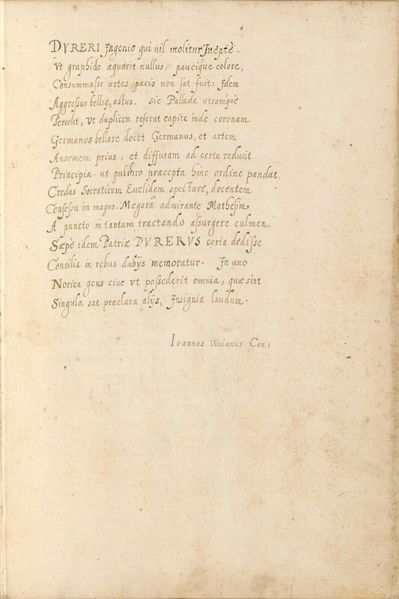 DVRERI Ingenio qui nil molitur Ineptè.
Vt graphide aequarit nullus, paucique colore,
Consummasse artes pacis non sat fuit: Idem
Aggressus belliq, astus. Sic Pallada utramque
Percolit, ut duplicem referat capite inde coronam.
Germanos bellare docet Germanus, et artem
Ancipitem prius, et diffusam ad certa reducit
Principia. ut pulchro praecepta hinc ordine pandat
Credas Socraticum Euclidem spectare, docentem
Consessu in magno Megara admirante Mathesin,
A puncto in tantum tractando assurgere culmen.
Saepe idem Patriae DVRERVS certa dedisse
Consilia in rebus dubijs memoratur. In uno
Norica gens ciue vt possederit omnia, quae sint
Singula sat praeclara alijs, Insignia laudum.
Ioannes Viuianus Can: